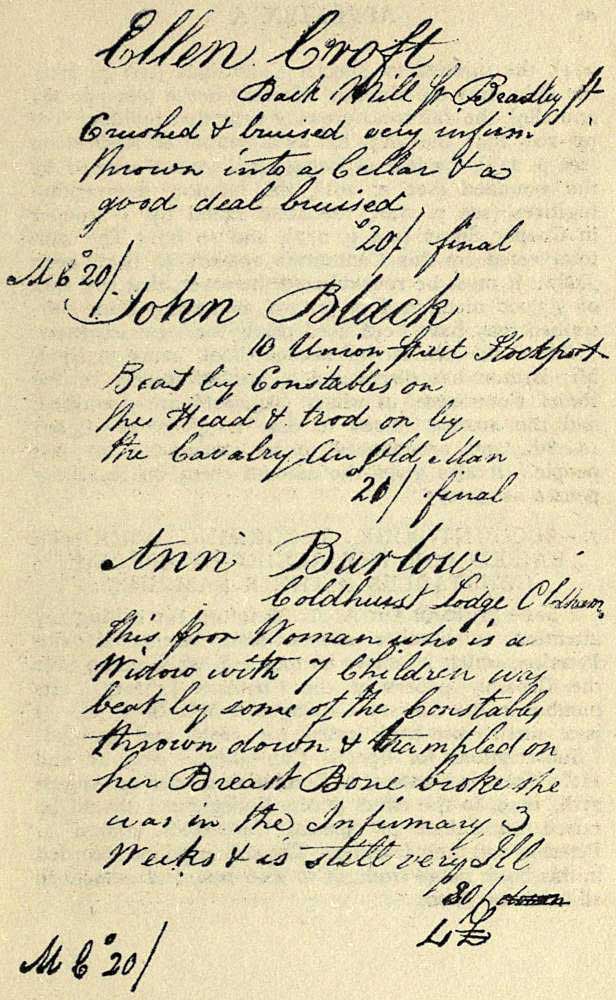 Ellen Croft
Back Mill St Beasley St
Crushed & bruised very infirm
thrown into a Cellar & a
good deal bruised
20/ final
M Co 20/
John Black
10 Union Street Stockport
Beat by Constables on
the Head & trod on by
the Cavalry An Old Man
20/ final
Ann Barlow
Coldhurst Lodge Oldham
This poor Woman who is a
Widow with 7 Children was
beat by some of the Constables
thrown down & trampled on
her Breast Bone broke she
was in the Infirmary 3
Weeks & is still very Ill
80/
4£
M Co 20/